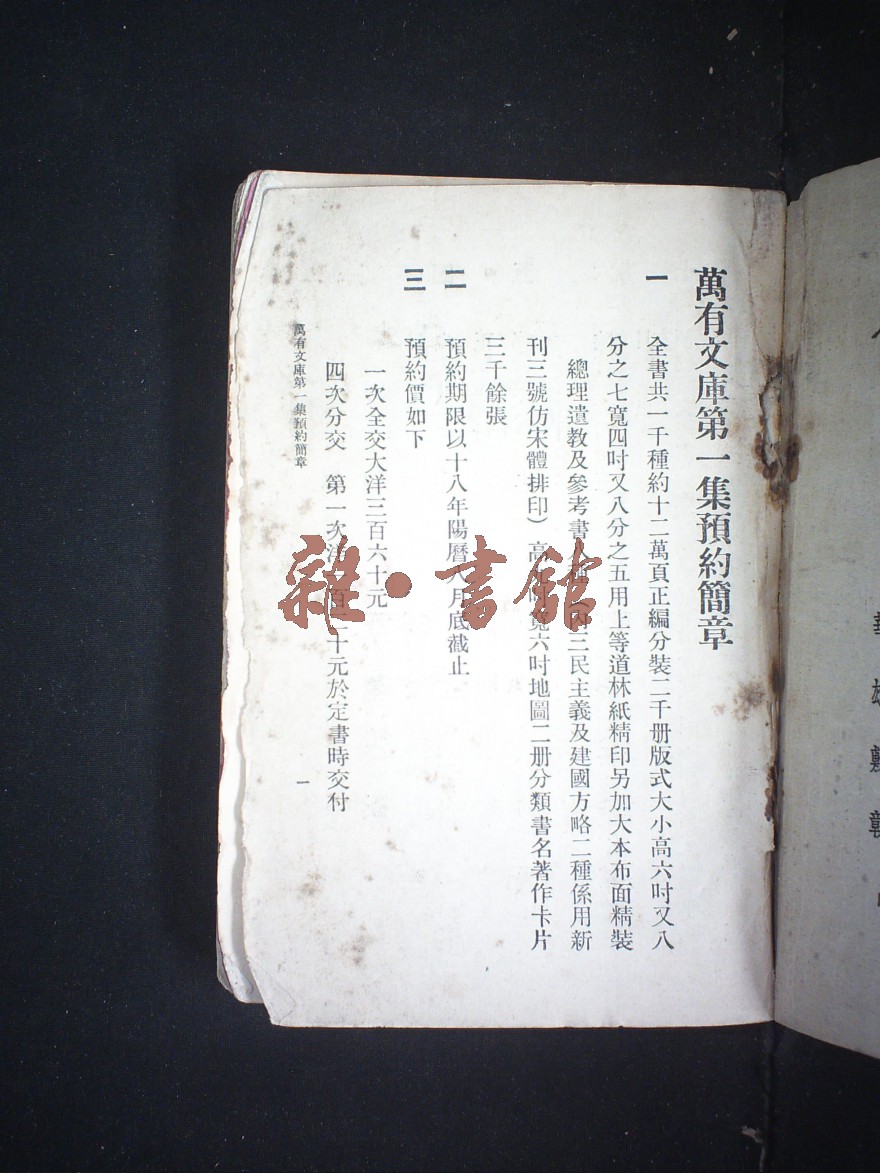 萬有文庫第一集預約簡章
一 全書共一千種約十二萬頁正編分裝二千册版式大小高六吋又八
分之七寬四吋又八分之五用上等道林紙精印另加大本布面精裝
總理遺教及參考書 內三民主義及建國方略二種係用新
刊三號仿宋體排印）高 寬六吋地圖二册分類書名著作卡片
三千餘張
二 預約期限以十八年陽曆八月底截止
三 預約價如下
一次全交大洋三百六十元
四次分交 第一次 百二十元於定書時交付
萬有文庫第一集預約簡章
一
雜·書館